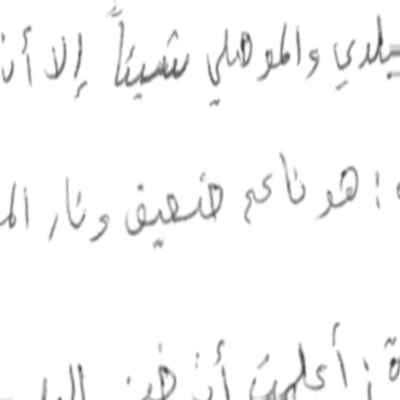 بلدي والموهلي شيئاً إلا أن
: هو ناعم ضعيف ونار الم
ة : أعلمت أن